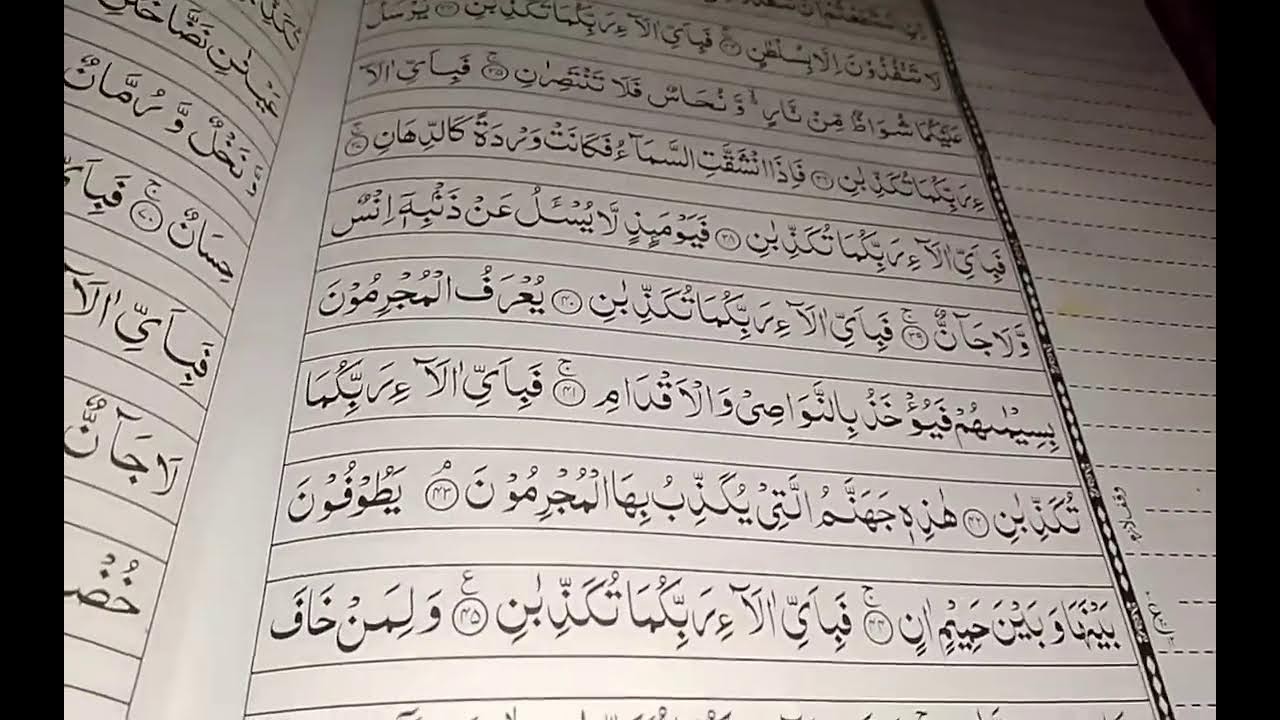 لَا تَنْفُذُوْنَ اِلَّا بِسُلْطٰنٍ ۝۳۳ فَبِاَيِّ اٰلَآءِ رَبِّكُمَا تُكَذِّبٰنِ ۝۳۴ يُرْسَلُ
عَلَيْكُمَا شُوَاظٌ مِّنْ نَّارٍ ۙ وَّ نُحَاسٌ فَلَا تَنْتَصِرٰنِ ۚ۝۳۵ فَبِاَيِّ اٰلَآ
ءِ رَبِّكُمَا تُكَذِّبٰنِ ۝۳۶ فَاِذَا انْشَقَّتِ السَّمَآءُ فَكَانَتْ وَرْدَةً كَالدِّهَانِ ۚ۝۳۷
فَبِاَيِّ اٰلَآءِ رَبِّكُمَا تُكَذِّبٰنِ ۝۳۸ فَيَوْمَئِذٍ لَّا يُسْـَٔلُ عَنْ ذَنْۢبِهٖٓ اِنْسٌ
وَّلَا جَآنٌّ ۚ۝۳۹ فَبِاَيِّ اٰلَآءِ رَبِّكُمَا تُكَذِّبٰنِ ۝۴۰ يُعْرَفُ الْمُجْرِمُوْنَ
بِسِيْمٰهُمْ فَيُؤْخَذُ بِالنَّوَاصِيْ وَالْاَقْدَامِ ۚ۝۴۱ فَبِاَيِّ اٰلَآءِ رَبِّكُمَا
تُكَذِّبٰنِ ۝۴۲ هٰذِهٖ جَهَنَّمُ الَّتِيْ يُكَذِّبُ بِهَا الْمُجْرِمُوْنَ ۘ۝۴۳ يَطُوْفُوْنَ
بَيْنَهَا وَبَيْنَ حَمِيْمٍ اٰنٍ ۚ۝۴۴ فَبِاَيِّ اٰلَآءِ رَبِّكُمَا تُكَذِّبٰنِ ۝۴۵ وَلِمَنْ خَافَ
وَّ نَخْلٌ وَّ رُمَّانٌ
حِسَانٌ ۚ۝۷۰ فَبِاَيِّ
فَبِاَيِّ اٰلَآ
لَا جَآنٌّ